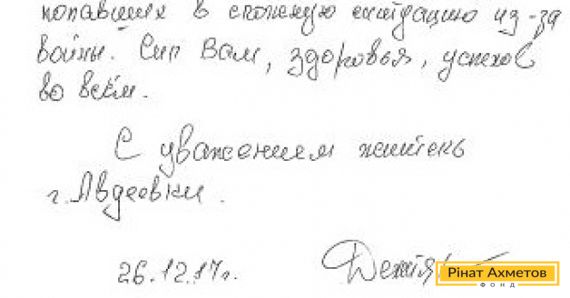 попавших в сложную ситуацию из-за
войны. Сил Вам, здоровья, успехов
во всём.
С уважением житель
г. Авдеевки.
26.12.17г.
Рінат Ахметов
ФОНД